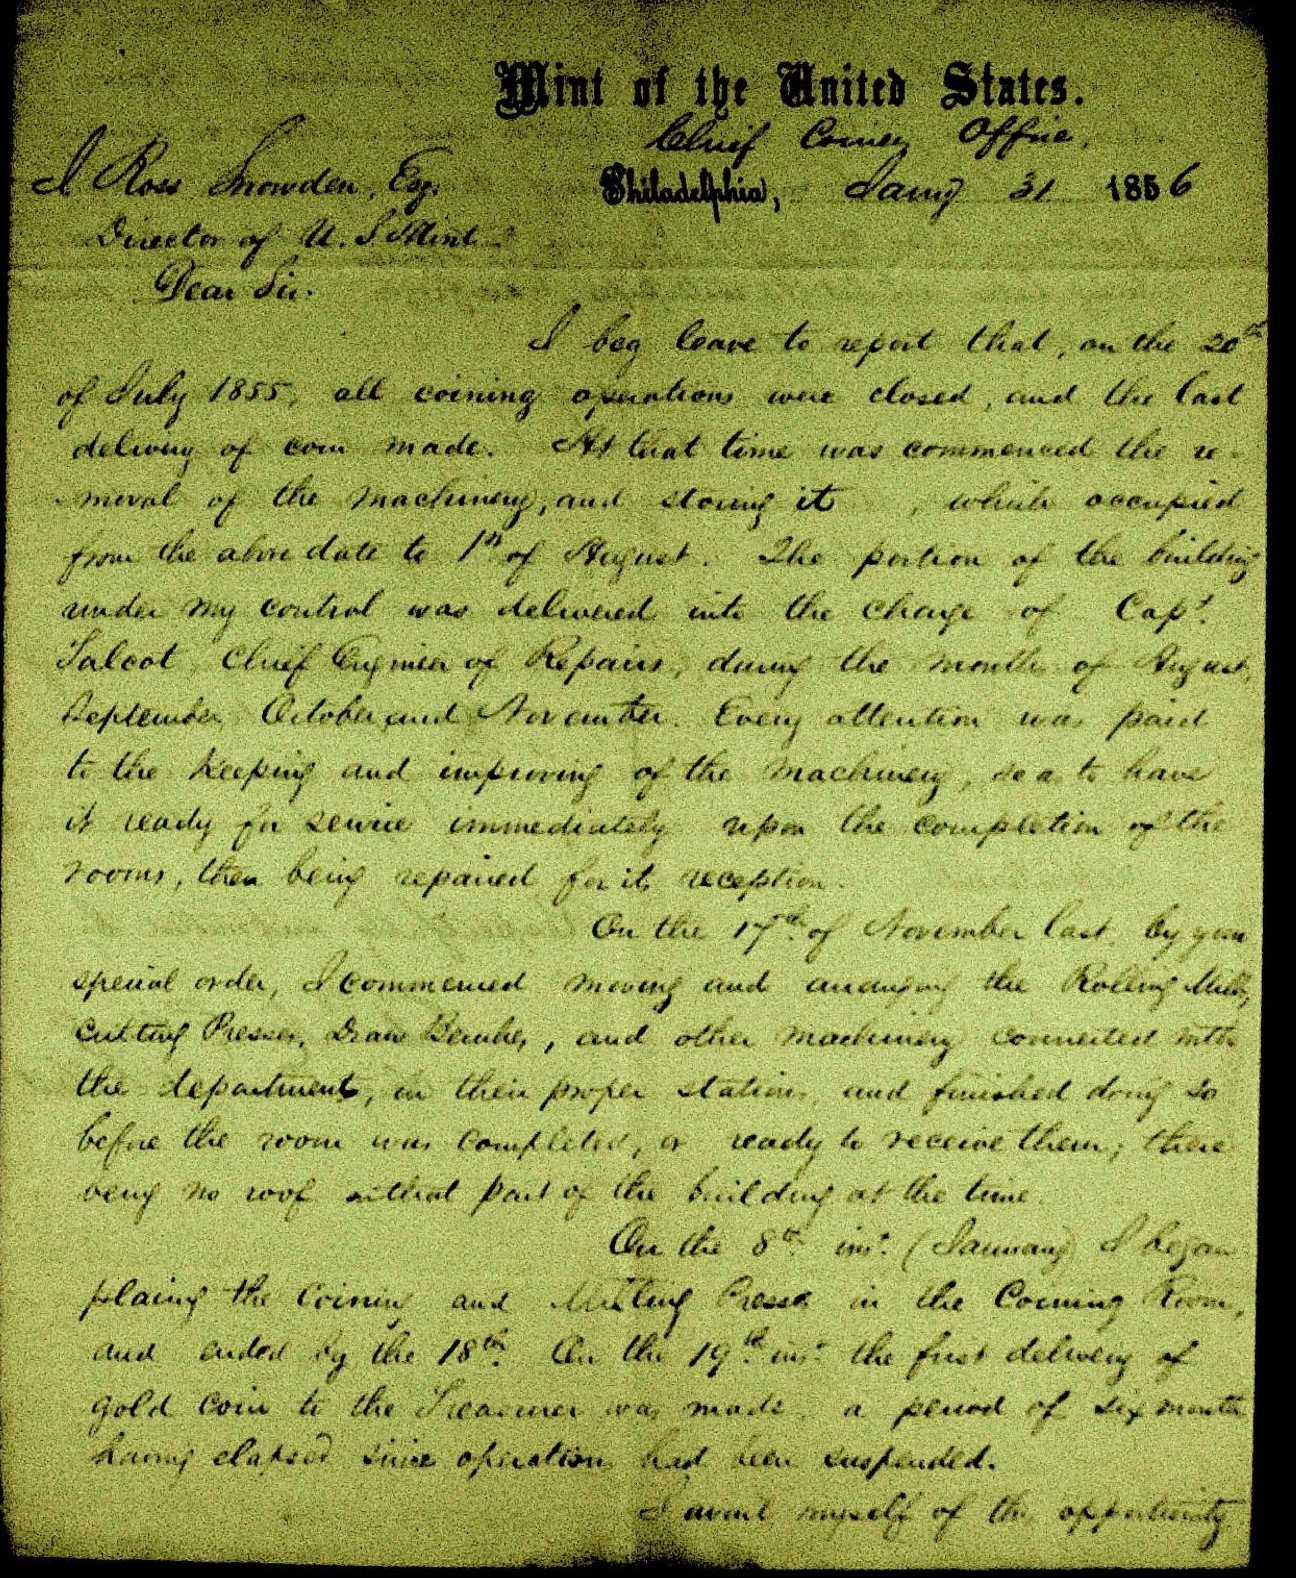 Mint of the United States.
Chief Coiner Office.
J Ross Snowden, Esq. Philadelphia, Jany 31 1856
Director of U. S Mint
Dear Sir.
I beg leave to report that, on the 20th
of July 1855, all coining operations were closed, and the last
delivery of coin made. At that time was commenced the re-
moval of the machinery, and storing it , which occupied
from the above date to 1st of August. The portion of the building
under my control was delivered into the charge of Capt
Talcot Chief Engineer of Repairs, during the months of August,
September, October, and November. Every attention was paid
to the keeping and improving of the machinery, so as to have
it ready for service immediately upon the completion of the
rooms, then being repaired for its reception.
On the 17th of November last, by your
special order, I commenced moving and arranging the Rolling Mills,
Cutting Presses, Draw Benches, and other machinery connected with
the department, in their proper stations, and finished doing so
before the room was completed, or ready to receive them; there
being no roof on that part of the building at the time.
On the 8th inst. (January) I began
placing the Coining and Milling Presses in the Coining Room,
and ended by the 18th. On the 19th inst. the first delivery of
gold coin to the Treasurer was made, a period of six months
having elapsed since operations had been suspended.
I avail myself of the opportunity